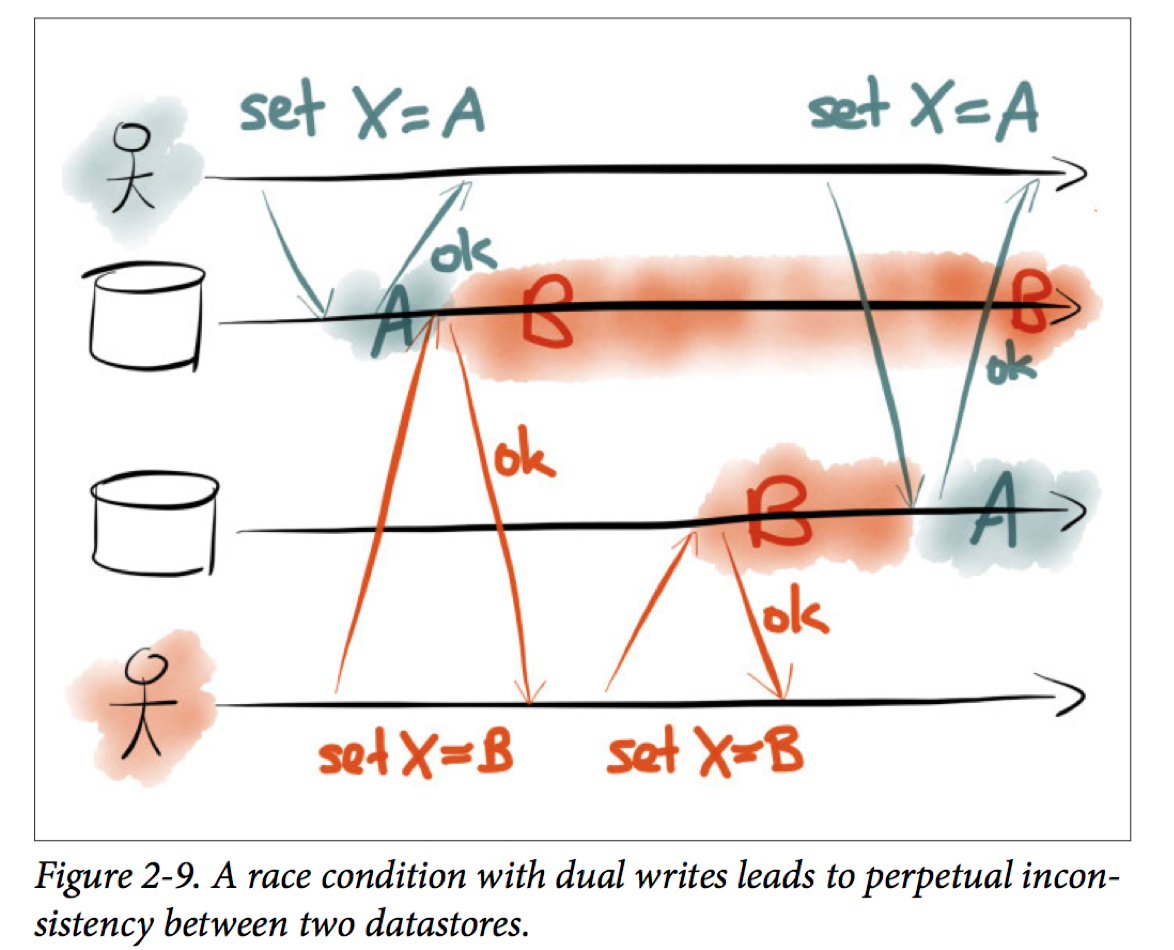 set X=A set X=A
ok
A B B
ok
ok
B A
ok
set X=B set X=B
Figure 2-9. A race condition with dual writes leads to perpetual incon-
sistency between two datastores.